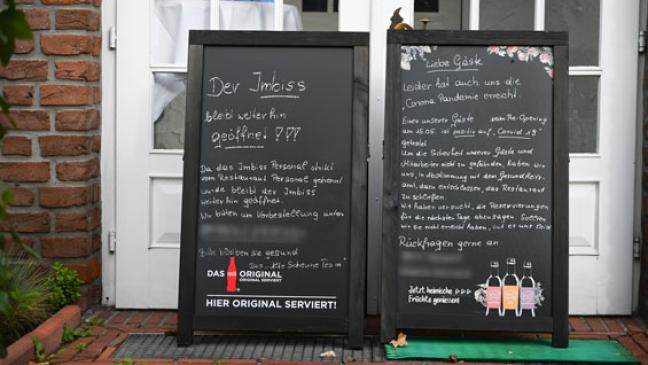 Der Imbiss
bleibt weiterhin
geöffnet !???
Da das Imbiss Personal strikt
vom Restaurant Personal getrennt
wurde bleibt der Imbiss
weiterhin geöffnet.
Wir bitten um Vorbestellung unter:
Bitte bleiben sie gesund
Team"
DAS ORIGINAL
ORIGINAL SERVIERT
HIER ORIGINAL SERVIERT!
Liebe Gäste
Leider hat auch uns die
Corona Pandemie erreicht.
Einer unserer Gäste vom Re-Opening
am 15.05. ist positiv auf "Covid 19"
getestet
Um die Sicherheit unserer Gäste und
Mitarbeiter nicht zu gefährden, haben wir
uns, in Abstimmung mit dem Gesundheits-
amt, dazu entschlossen, das Restaurant
zu schließen.
Wir haben versucht, die Reservierungen
für die nächsten Tage abzusagen. Sollten
wir Sie nicht erreicht haben, tut es uns leid
Rückfragen gerne an
Jetzt heimische
Früchte genießen!